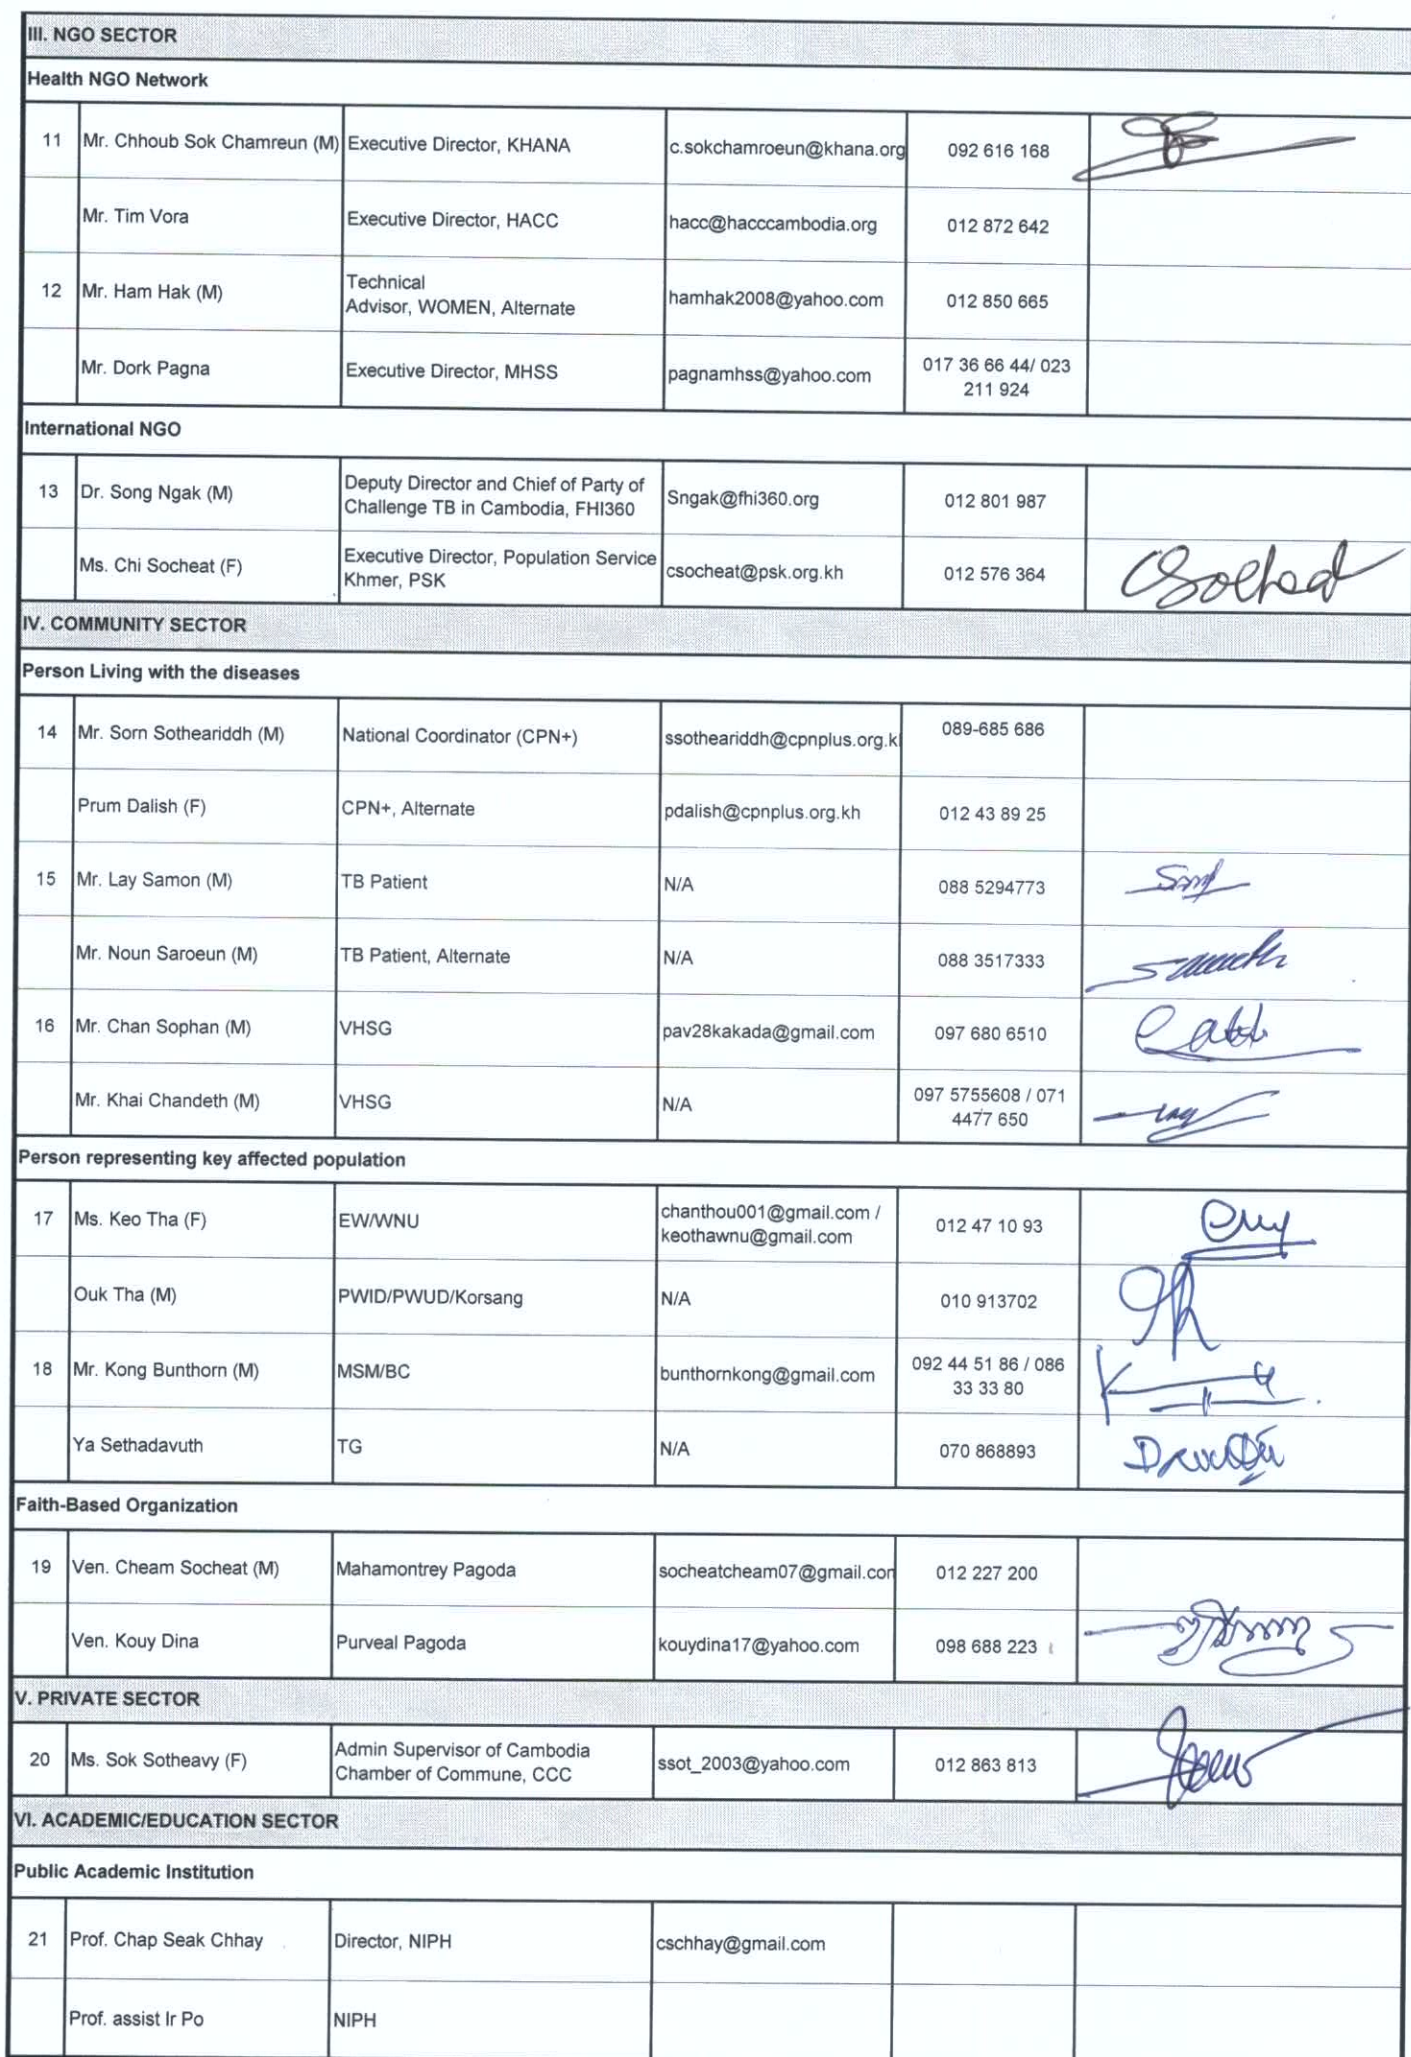 III. NGO SECTOR
Health NGO Network
11 Mr. Chhoub Sok Chamreun (M) Executive Director, KHANA c.sokchamroeun@khana.org 092 616 168
Mr. Tim Vora Executive Director, HACC hacc@hacccambodia.org 012 872 642
12 Mr. Ham Hak (M) Technical
Advisor, WOMEN, Alternate hamhak2008@yahoo.com 012 850 665
Mr. Dork Pagna Executive Director, MHSS pagnamhss@yahoo.com 017 36 66 44/ 023
211 924
International NGO
13 Dr. Song Ngak (M) Deputy Director and Chief of Party of
Challenge TB in Cambodia, FHI360 Sngak@fhi360.org 012 801 987
Ms. Chi Socheat (F) Executive Director, Population Service
Khmer, PSK csocheat@psk.org.kh 012 576 364 CSocheat
IV. COMMUNITY SECTOR
Person Living with the diseases
14 Mr. Sorn Sotheariddh (M) National Coordinator (CPN+) ssotheariddh@cpnplus.org.k 089-685 686
Prum Dalish (F) CPN+, Alternate pdalish@cpnplus.org.kh 012 43 89 25
15 Mr. Lay Samon (M) TB Patient N/A 088 5294773
Mr. Noun Saroeun (M) TB Patient, Alternate N/A 088 3517333
16 Mr. Chan Sophan (M) VHSG pav28kakada@gmail.com 097 680 6510
Mr. Khai Chandeth (M) VHSG N/A 097 5755608 / 071
4477 650
Person representing key affected population
17 Ms. Keo Tha (F) EW/WNU chanthou001@gmail.com /
keothawnu@gmail.com 012 47 10 93
Ouk Tha (M) PWID/PWUD/Korsang N/A 010 913702
18 Mr. Kong Bunthorn (M) MSM/BC bunthornkong@gmail.com 092 44 51 86 / 086
33 33 80
Ya Sethadavuth TG N/A 070 868893
Faith-Based Organization
19 Ven. Cheam Socheat (M) Mahamontrey Pagoda socheatcheam07@gmail.con 012 227 200
Ven. Kouy Dina Purveal Pagoda kouydina17@yahoo.com 098 688 223
V. PRIVATE SECTOR
20 Ms. Sok Sotheavy (F) Admin Supervisor of Cambodia
Chamber of Commune, CCC ssot_2003@yahoo.com 012 863 813
VI. ACADEMIC/EDUCATION SECTOR
Public Academic Institution
21 Prof. Chap Seak Chhay Director, NIPH cschhay@gmail.com
Prof. assist Ir Po NIPH